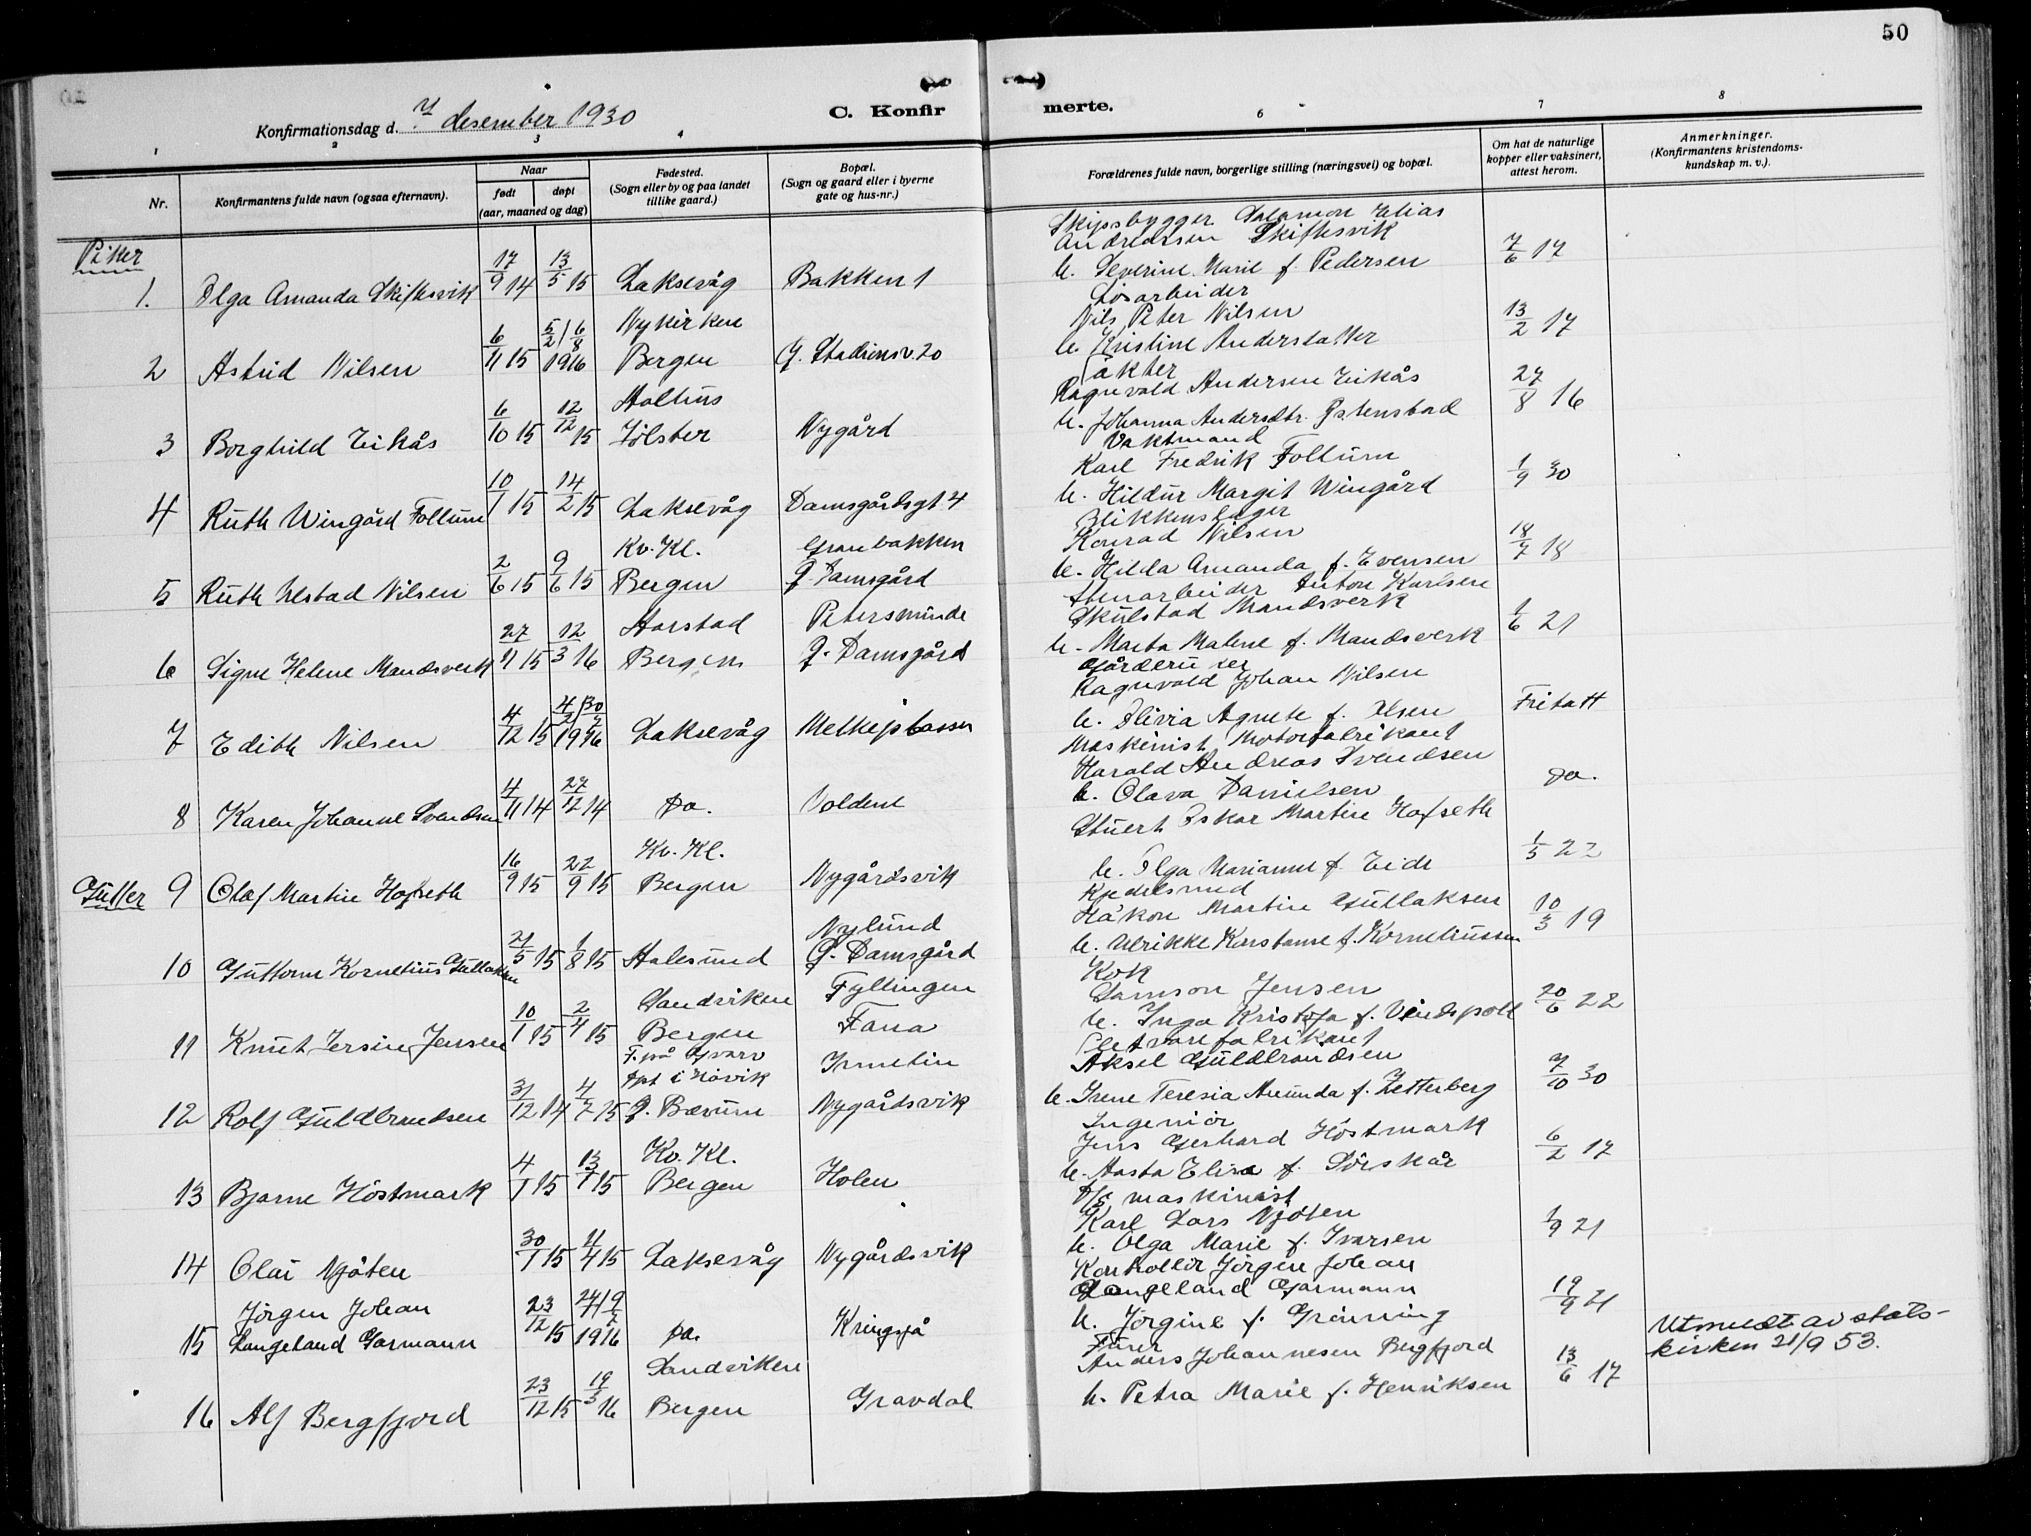 50
Konfirmationsdag d. 7 desember 1930
C. Konfirmerte.
1 2 3 4 6 7 8
Nr.
Konfirmantens fulde navn (ogsaa efternavn).
Naar
født
døpt
(aar, maaned og dag)
Fødested.
(Sogn eller by og paa landet
tillike gaard.)
Bopæl.
(Sogn og gaard eller i byerne
gate og hus-nr.)
Forældrenes fulde navn, borgerlige stilling (næringsvei) og bopæl.
Om hat de naturlige
kopper eller vaksinert,
attest herom.
Anmerkninger.
(Konfirmantens kristendoms-
kundskap m. v.).
Piker
1. Olga Amanda Skiftesvik 17/9 14 13/5 15 Laksevåg Bakken 1
Skipsbygger Salamon Elias
Andreassen Skiftesvik
h. Severine Marie f. Pedersen 7/6 17
2 Astrid Nilsen 6/11 15 5/2 / 6/8 1916 Nykirken
Bergen G. Stadionsv. 20
Løsarbeider
Nils Peter Nilsen
h. Kristine Andersdatter 13/2 17
3 Borghild Eikås 6/10 15 12/12 15
Jølster Nygård
Ragnvald Andersen Eikås
h. Johanna Andersdtr. 27/8 16
4 Ruth Wingård Follum 10/1 15 14/2 15 Laksevåg Damsgårdsgt 4
Vaktmand
Karl Fredrik Follum
h. Hildur Margit Wingård 1/9 30
5 Ruth Ulstad Nilsen 2/6 15 9/6 15 Kv. Kl.
Bergen Granbakken
G. Damsgård
Blikkenslager
Konrad Nilsen
h. Hilda Amanda f. Evensen 18/7 18
6 Signe Helene Mandsverk 27/11 15 12/3 16 Aarstad
Bergen Petersminde
G. Damsgård
Anton Karlsen
Skulstad Mandsverk
h. Marta Malene f. Mandsverk 1/6 21
7 Edith Nilsen 4/12 15 4/2 / 30/7 1916 Laksevåg Melkeplassen
Ragnvald Johan Nilsen
h. Olivia Agnete f. Olsen Fritatt
8 Karen Johanne Svendsen 4/11 14 27/12 14 Do. Voldene
Maskinist Motorfabrikant
Harald Andreas Svendsen
h. Olava Danielsen Do.
Gutter 9 Olaf Martin Hofseth 16/9 15 22/9 15 Kv. Kl.
Bergen Nygårdsvik
Stuert Oskar Martin Hofseth
h. Olga Marianne f. Eide 1/5 22
10 Guttorm Kornelius Gullaksen 21/5 15 1/8 15 Aalesund Nylund
G. Damsgård
Kjedelsmed
Håkon Martin Gullaksen
h. Ulrikke Konstanse f. Korneliussen 10/3 19
11 Knut Jersin Jensen 10/1 15 2/4 15 Sandviken
Bergen Fyllingen
Fana
Kok
Samson Jensen
h. Inga Kristofa f. Vindspoll 20/6 22
12 Rolf Guldbrandsen 31/12 14 4/7 15 F. på Gvarv
dpt i Høvik
G. Bærum Irmelin
Nygårdsvik
Aksel Guldbrandsen
h. Irene Teresia Amunda f. Zetterberg 7/10 30
13 Bjarne Höstmark 4/1 15 13/1 15 Kv. Kl.
Bergen Holen
Ingeniör
Jens Gerhard Höstmark
h. Aasta Elisa f. Sörskår 6/2 17
14 Olai Njåten 30/1 15 11/4 15 Laksevåg Nygårdsvik
D/S maskinist
Karl Lars Njåten
h. Olga Marie f. Ivarsen 1/9 21
15 Jörgen Johan
Langeland Garmann 23/12 15 1916 Do. Kringsjå
Kontollör Jörgen Johan
Langeland Garmann
h. Jörgine f. Grönning 19/9 21
Utmeldt av stats-
kirken 21/9 53.
16 Alf Bergfjord 23/12 15 19/3 16 Sandviken
Bergen Gravdal
Fører
Anders Johannesen Bergfjord
h. Petra Marie f. Henriksen 13/6 17